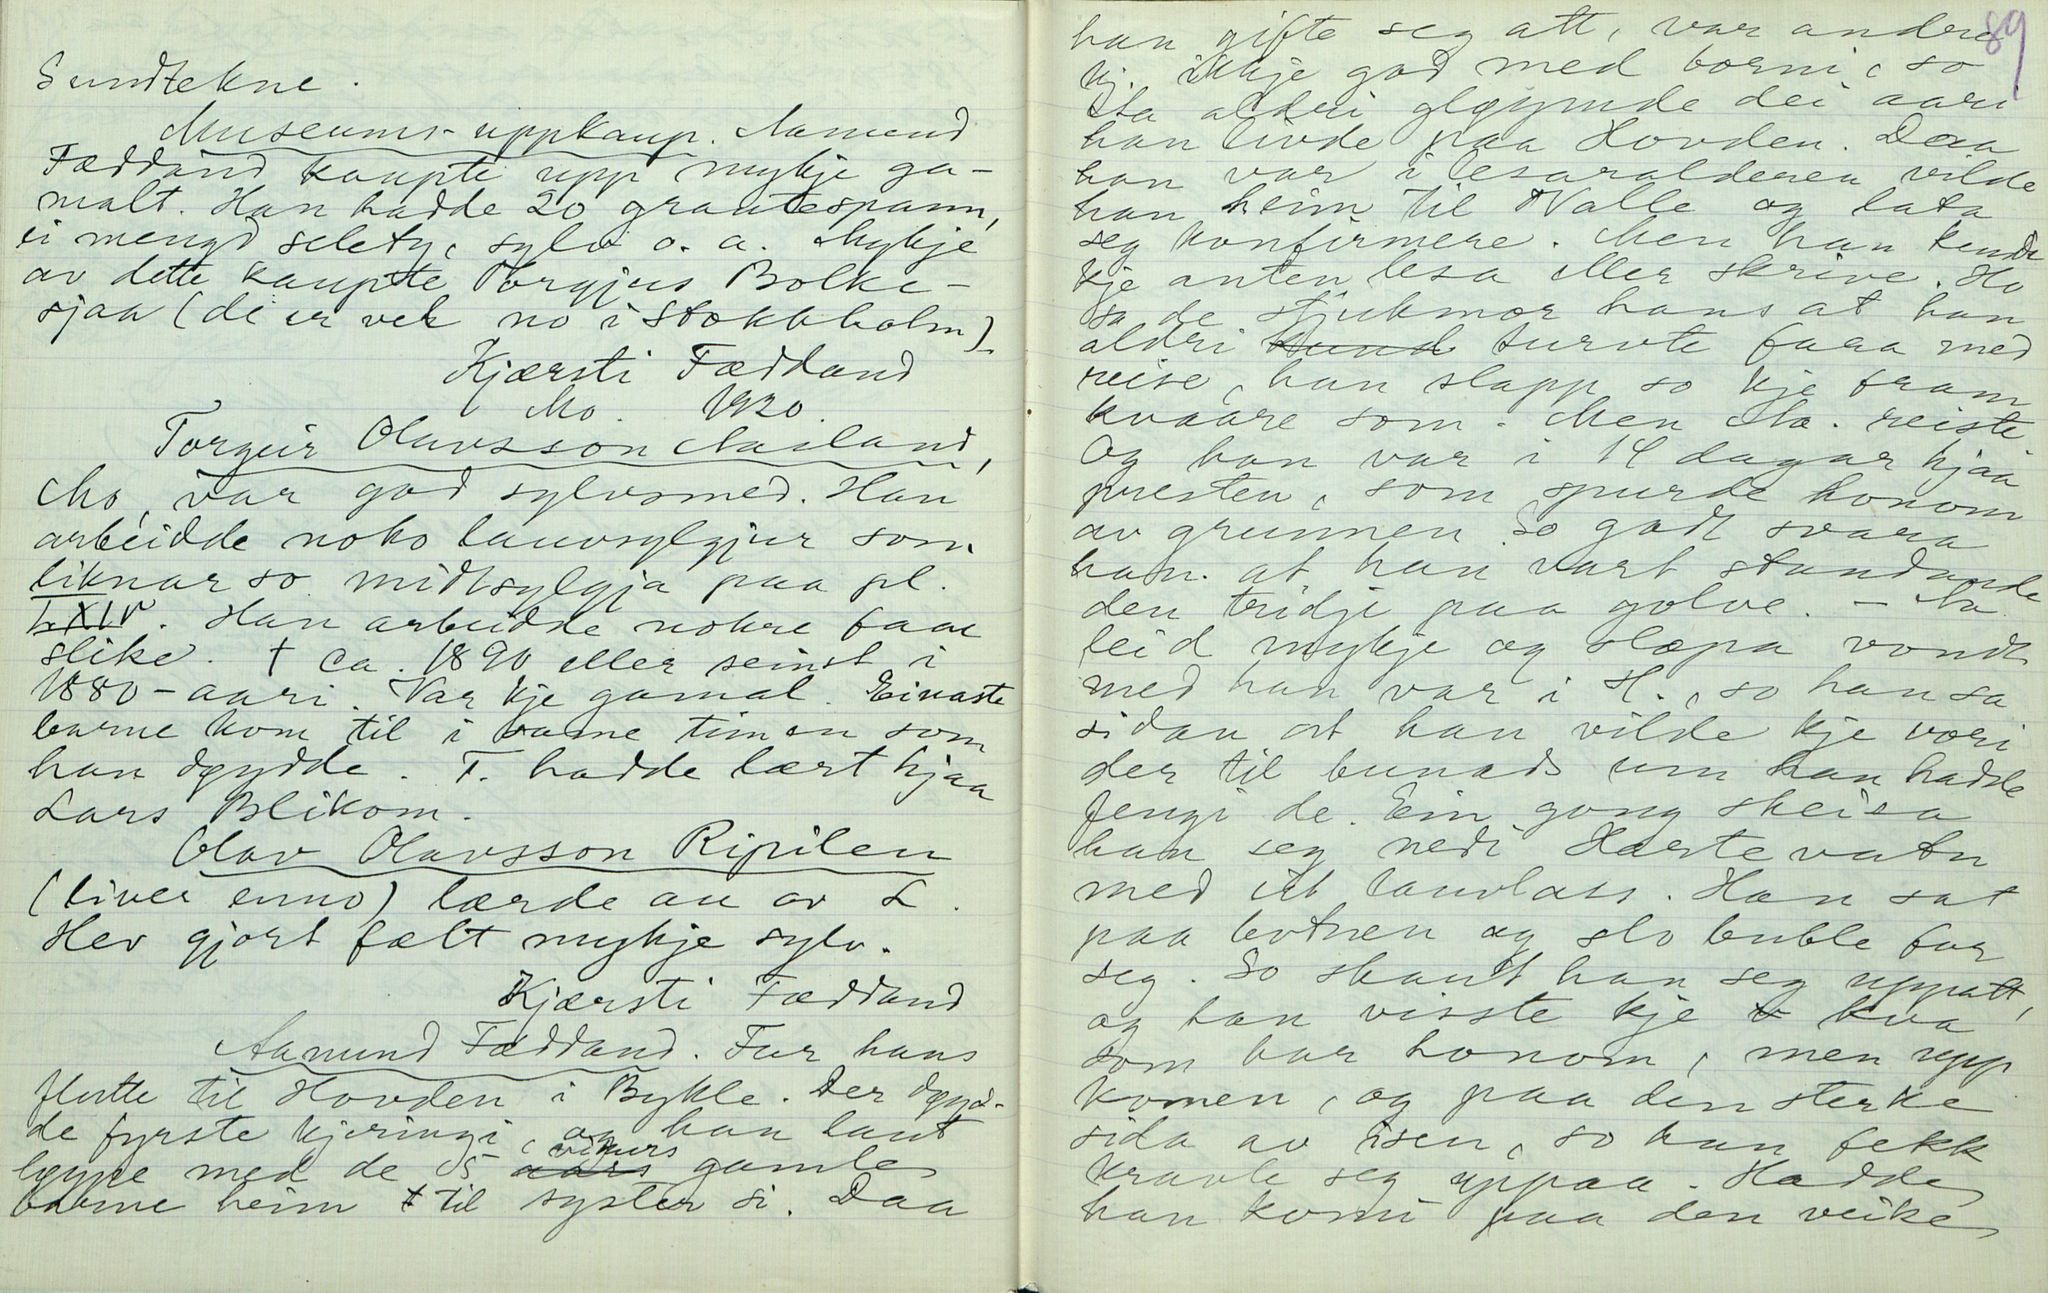 Sundtekne.
Museums-uppkaup. Aamund
Fæddand kaupte upp mykje ga-
malt. Han hadde 20 grautespann,
ei mengd selety, sylv o. a. Mykje
av dette kaupte Torgjus Bolke-
sjaa (de er vek no i Stokkholm)
Kjærsti Fæddand
Mo. 1920.
Torgeir Olavsson Aasland,
Mo, var god sylvsmed. Han
arbeidde noko lauvsylgjur som
liknar so midtsylgja paa pl.
LXIV. Han arbeidde nokre faae
slike. † ca. 1890 eller seinst i
1880-aari. Var kje gamal. Einaste
barne kom til i same timen som
han døydde. T. hadde lært hjaa
Lars Blikom.
Olav Olavsson Ripilen
(liver enno) lærde au av L.
Hev gjort fælt mykje sylv.
Kjærsti Fæddand
Aamund Fæddand. Far hans
flutte til Hovden i Bykle. Der døyd-
de fyrste kjeringi, og han laut
løype med de 5 aars vikurs gamle
barne heim t til syster si. Daa
89
han gifte seg att, var andre
kj. ikkje god med borni, so
Aa aldri gløymde dei aari
han livde paa Hovden. Daa
han var i lesaralderen vilde
han heim til Valle og lata
seg konfirmere. Men han kunde
kje anten lesa eller skrive. Ho
sa de stjukmor hans at han
aldri kund turvte faaa med
reise, han slapp so kje fram
kvaare som. Men Aa. reiste
Og han var i 14 dagar hjaa
presten, som spurde honom
av grunnen. So godt svara
han at han vart standande
den tridje paa golve. – Aa
leid mykje og slæpa vondt
med han var i H., so han sa
sidan at han vilde kje vori
der til bunads um han hadde
fengi de. Ein gong skeisa
han seg nedi Hartevatn
med eit lauvlass. Han sat
paa botnen og slo buble for
seg. So skaut han seg uppatt,
og han visste kje v kva
som bar honom, men upp
komen, og paa den sterke
sida av isen, so han fekk
kravle seg uppaa. Hadde
han komi paa den veike